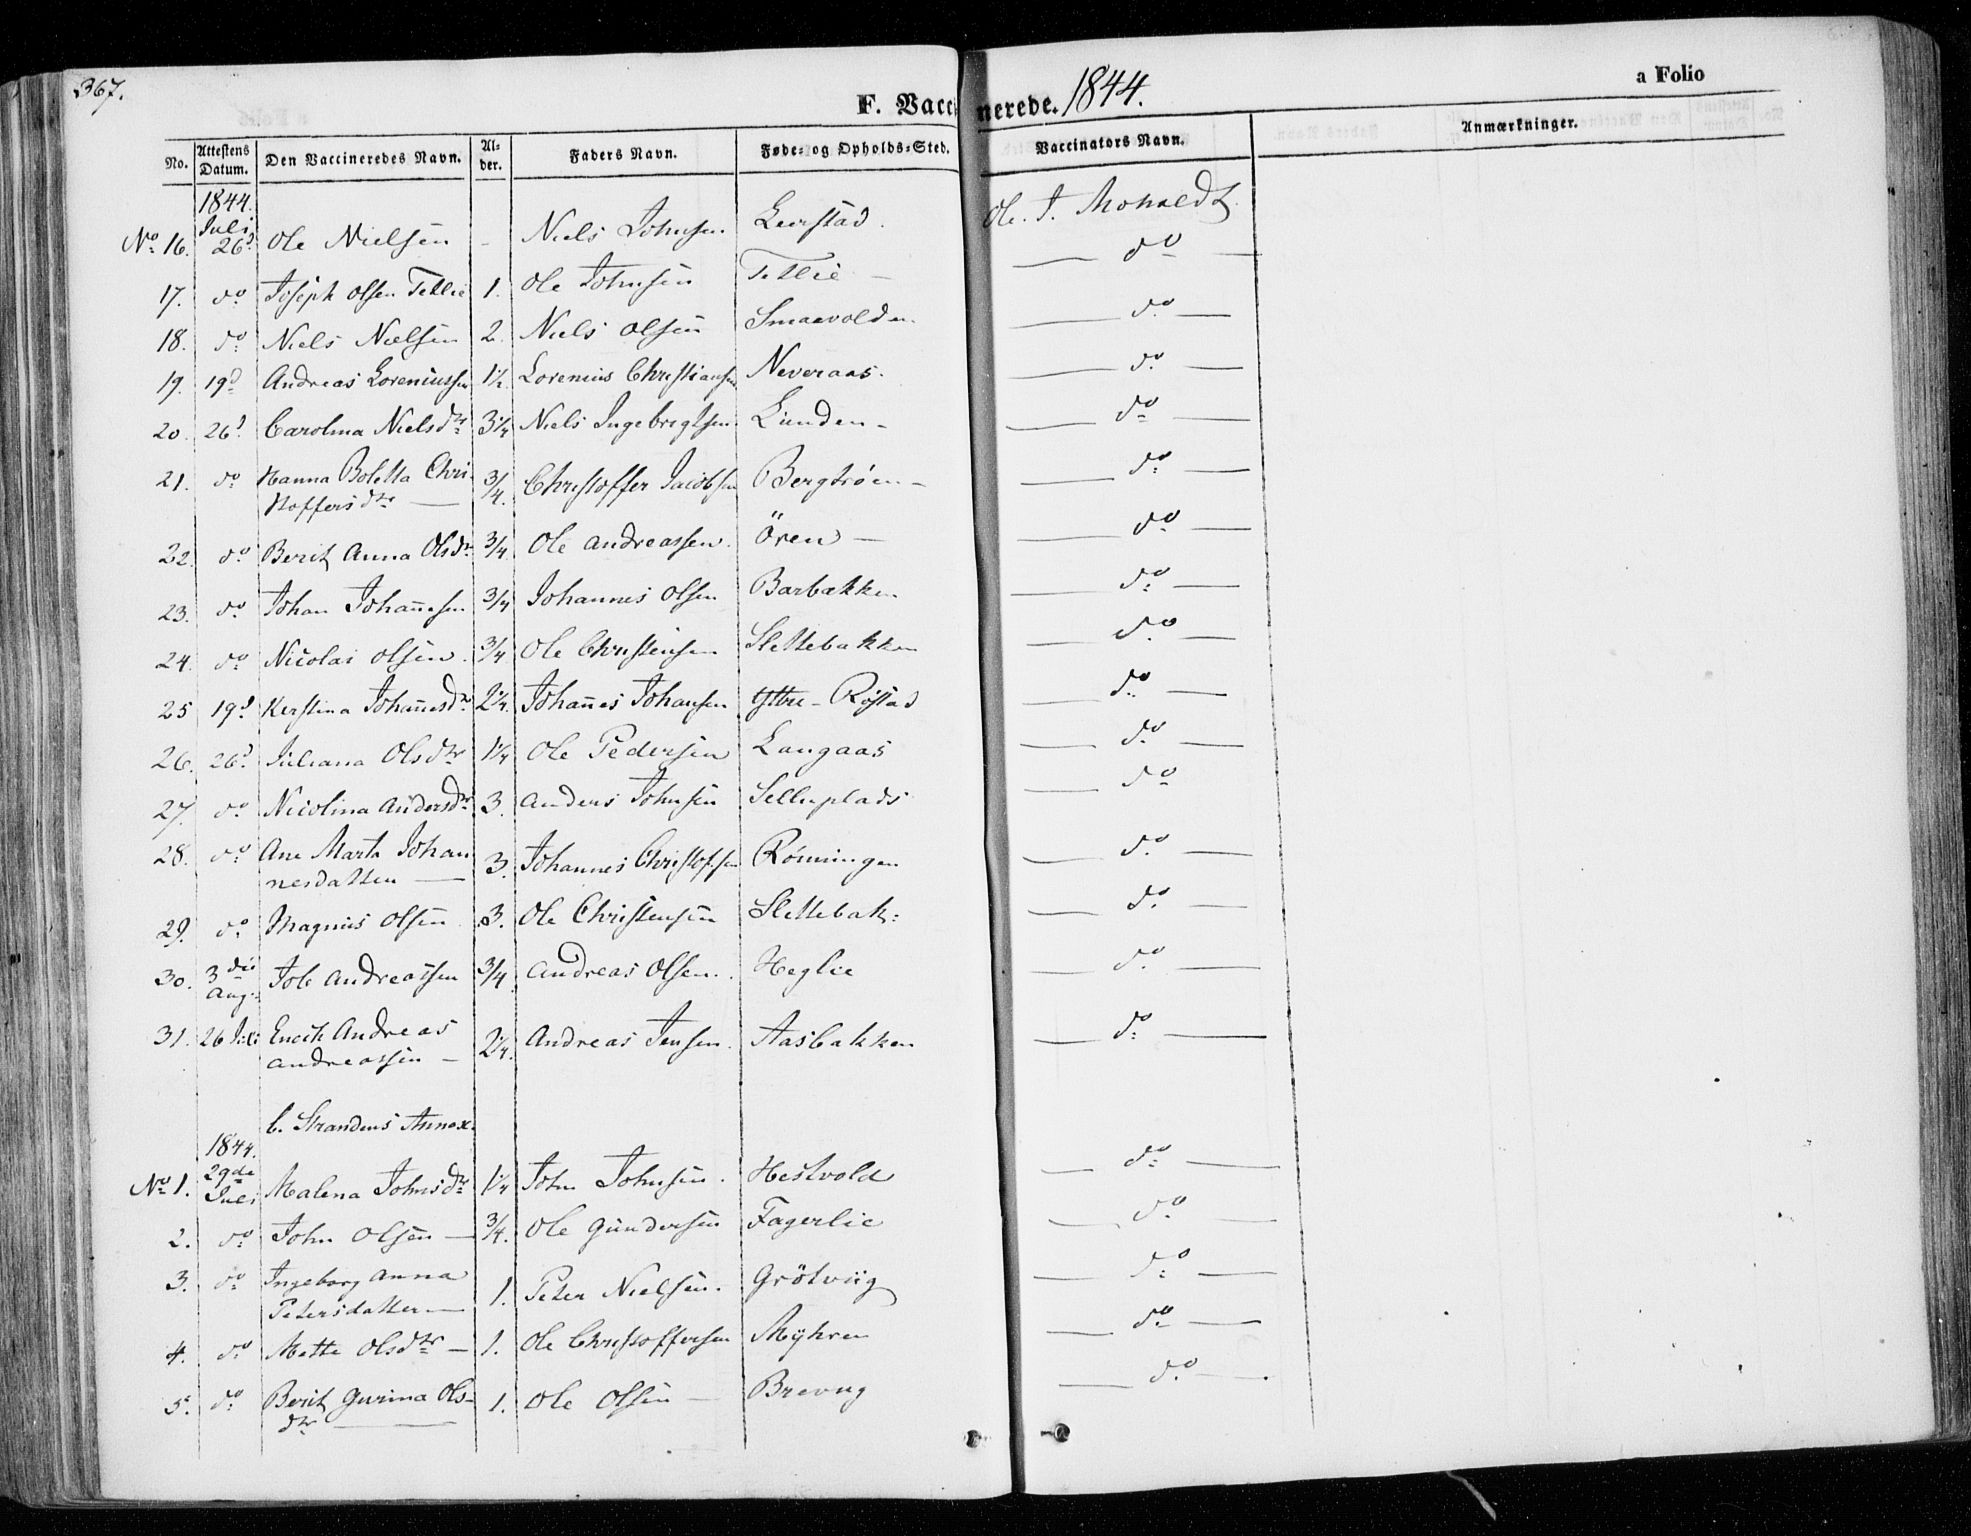 367.
F. Vaccinerede. 1844.
a Folio
No. Attestens Datum. Den Vaccineredes Navn. Al-der. Faders Navn. Føde- og Opholds-Sted. Vaccinators Navn. Anmærkninger.
1844. Juli
No 16. 26d Ole Nielsen - Niels Johnsen Leirstad. Ole. J.
17. do Joseph Olsen Tetlie 1. Ole Johnsen Tetlie — do
18. do Niels Nielsen 2. Niels Olsen Smaavolden do
19. 19d Andreas Loreniussen 1½ Lorenius Christiansen Neveraas. do
20. 26d Carolina Nielsdtr 3¼ Niels Ingebrigtsen Lunden - do
21. do Hanna Boletta Chri-
stoffersdtr — 3/4. Christoffer Jacobsen Bergtrøen - do
22. do Berit Anna Olsdtr 3/4. Ole Andreassen. Ören — do
23. do Johan Johannesen 3/4 Johannes Olsen Barbakken do
24. do Nicolai Olsen. 3/4 Ole Christensen Slettebakken do
25 19d Kerstina Johannesdtr 2¼. Johannes Johansen Ystre - Røstad do
26. 26d Juliana Olsdtr 1¼ Ole Pedersen Langaas do
27. do Nicolina Andersdtr 3. Anders Johnsen Selluplads do
28. do Ane Marta Johan
nesdatter — 3. Johannes Christofsen Rønningen do
29. do Magnus Olsen 3. Ole Christensen Slettebak: do
30. 3die Aug. Job Andreassen 3/4. Andreas Olsen. Heglie do
31. 26 Juli Enoch Andreas
Andreassen — 2¼. Andreas Jensen. Aasbakken do
b. Strandens Annex.
1844.
No 1. 29de Juli Malena Johnsdtr 1¼ John Johnsen. Hestvold do
2. do John Olsen — 3/4. Ole Gundersen Fagerlie do
3. do Ingeborg Anna
Petersdatter — 1. Peter Nielsen. Grötviig do
4. do Mette Olsdtr — 1. Ole Christoffersen Myhren do
5. do Berit Gurina Ols-
dtr — 1. Ole Olsen — Brevug do